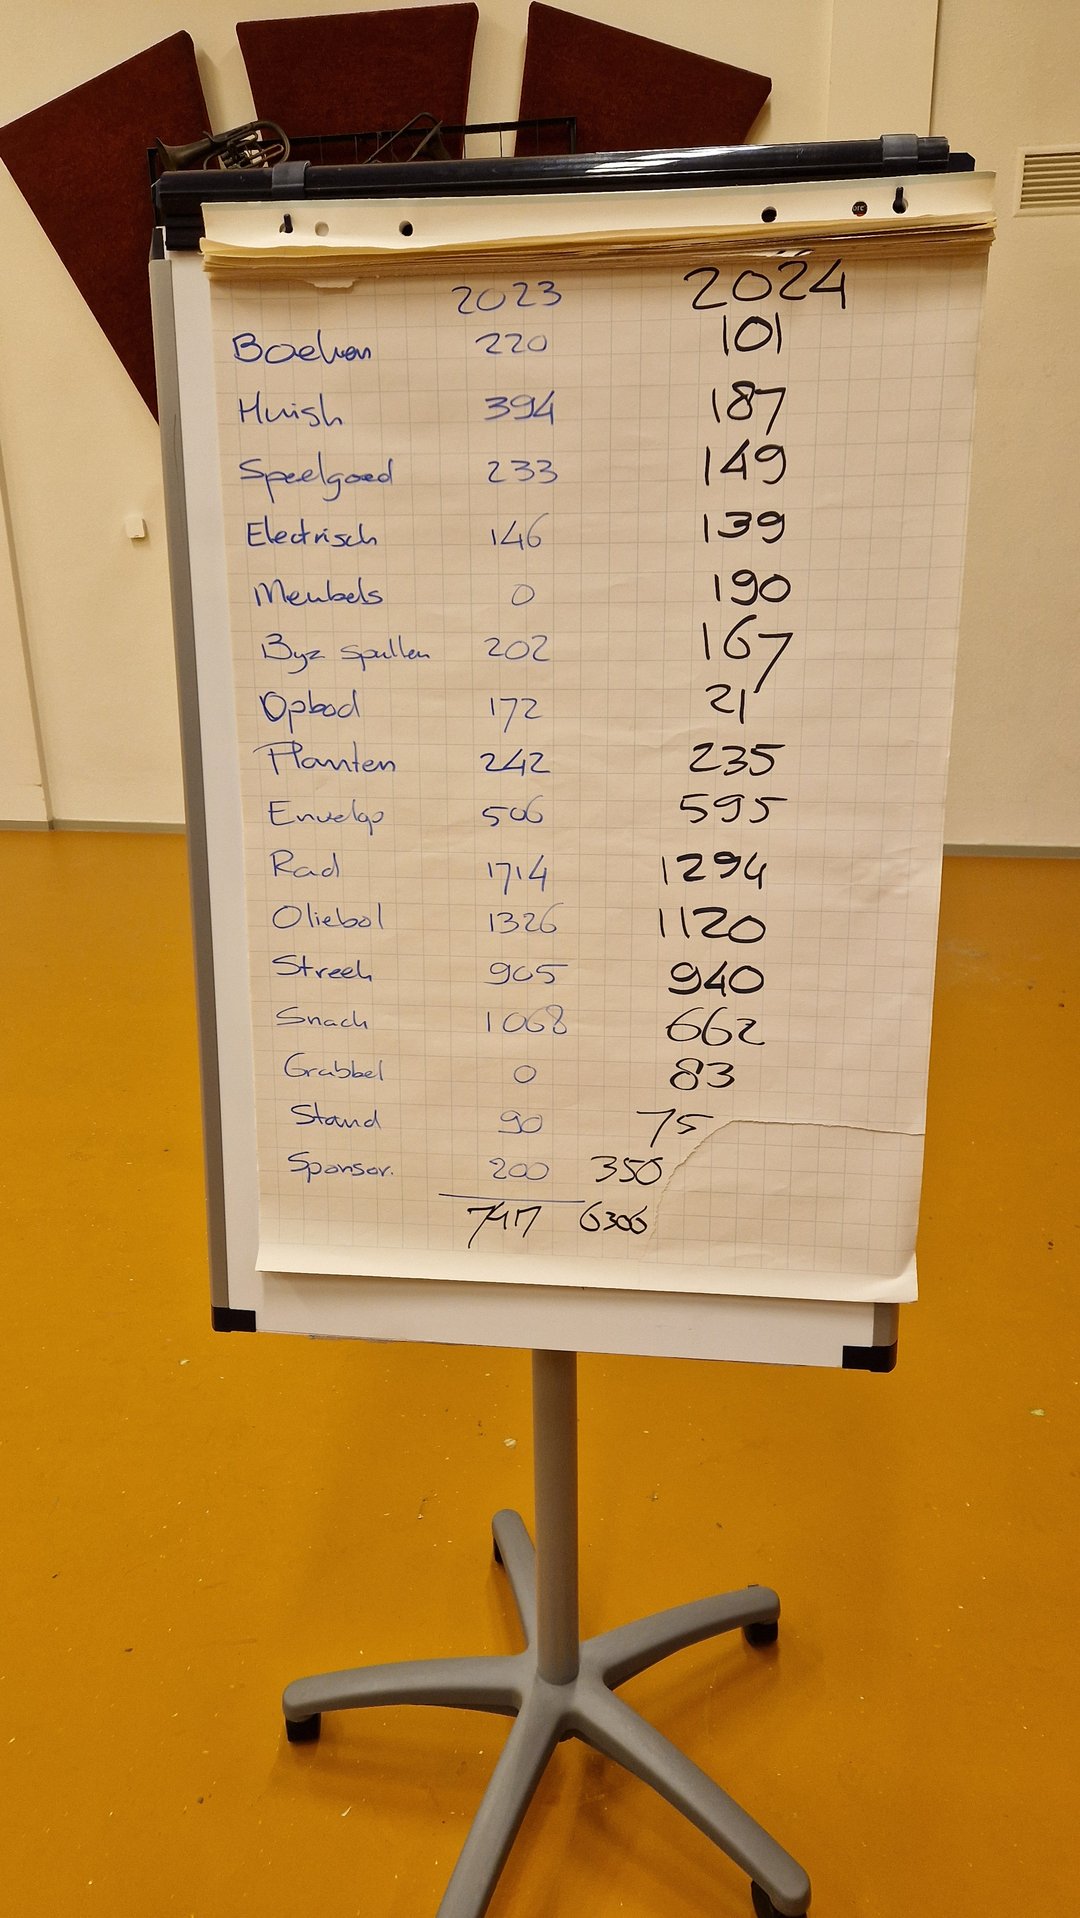 2023 2024
Boeken 220 101
Huish 394 187
Speelgoed 233 149
Electrisch 146 139
Meubels 0 190
Byz spullen 202 167
Opbod 172 21
Planten 242 235
Envelop 506 595
Rad 1714 1294
Oliebol 1326 1120
Streek 905 940
Snack 1068 662
Grabbel 0 83
Stand 90 75
Sponsor. 200 350
6306